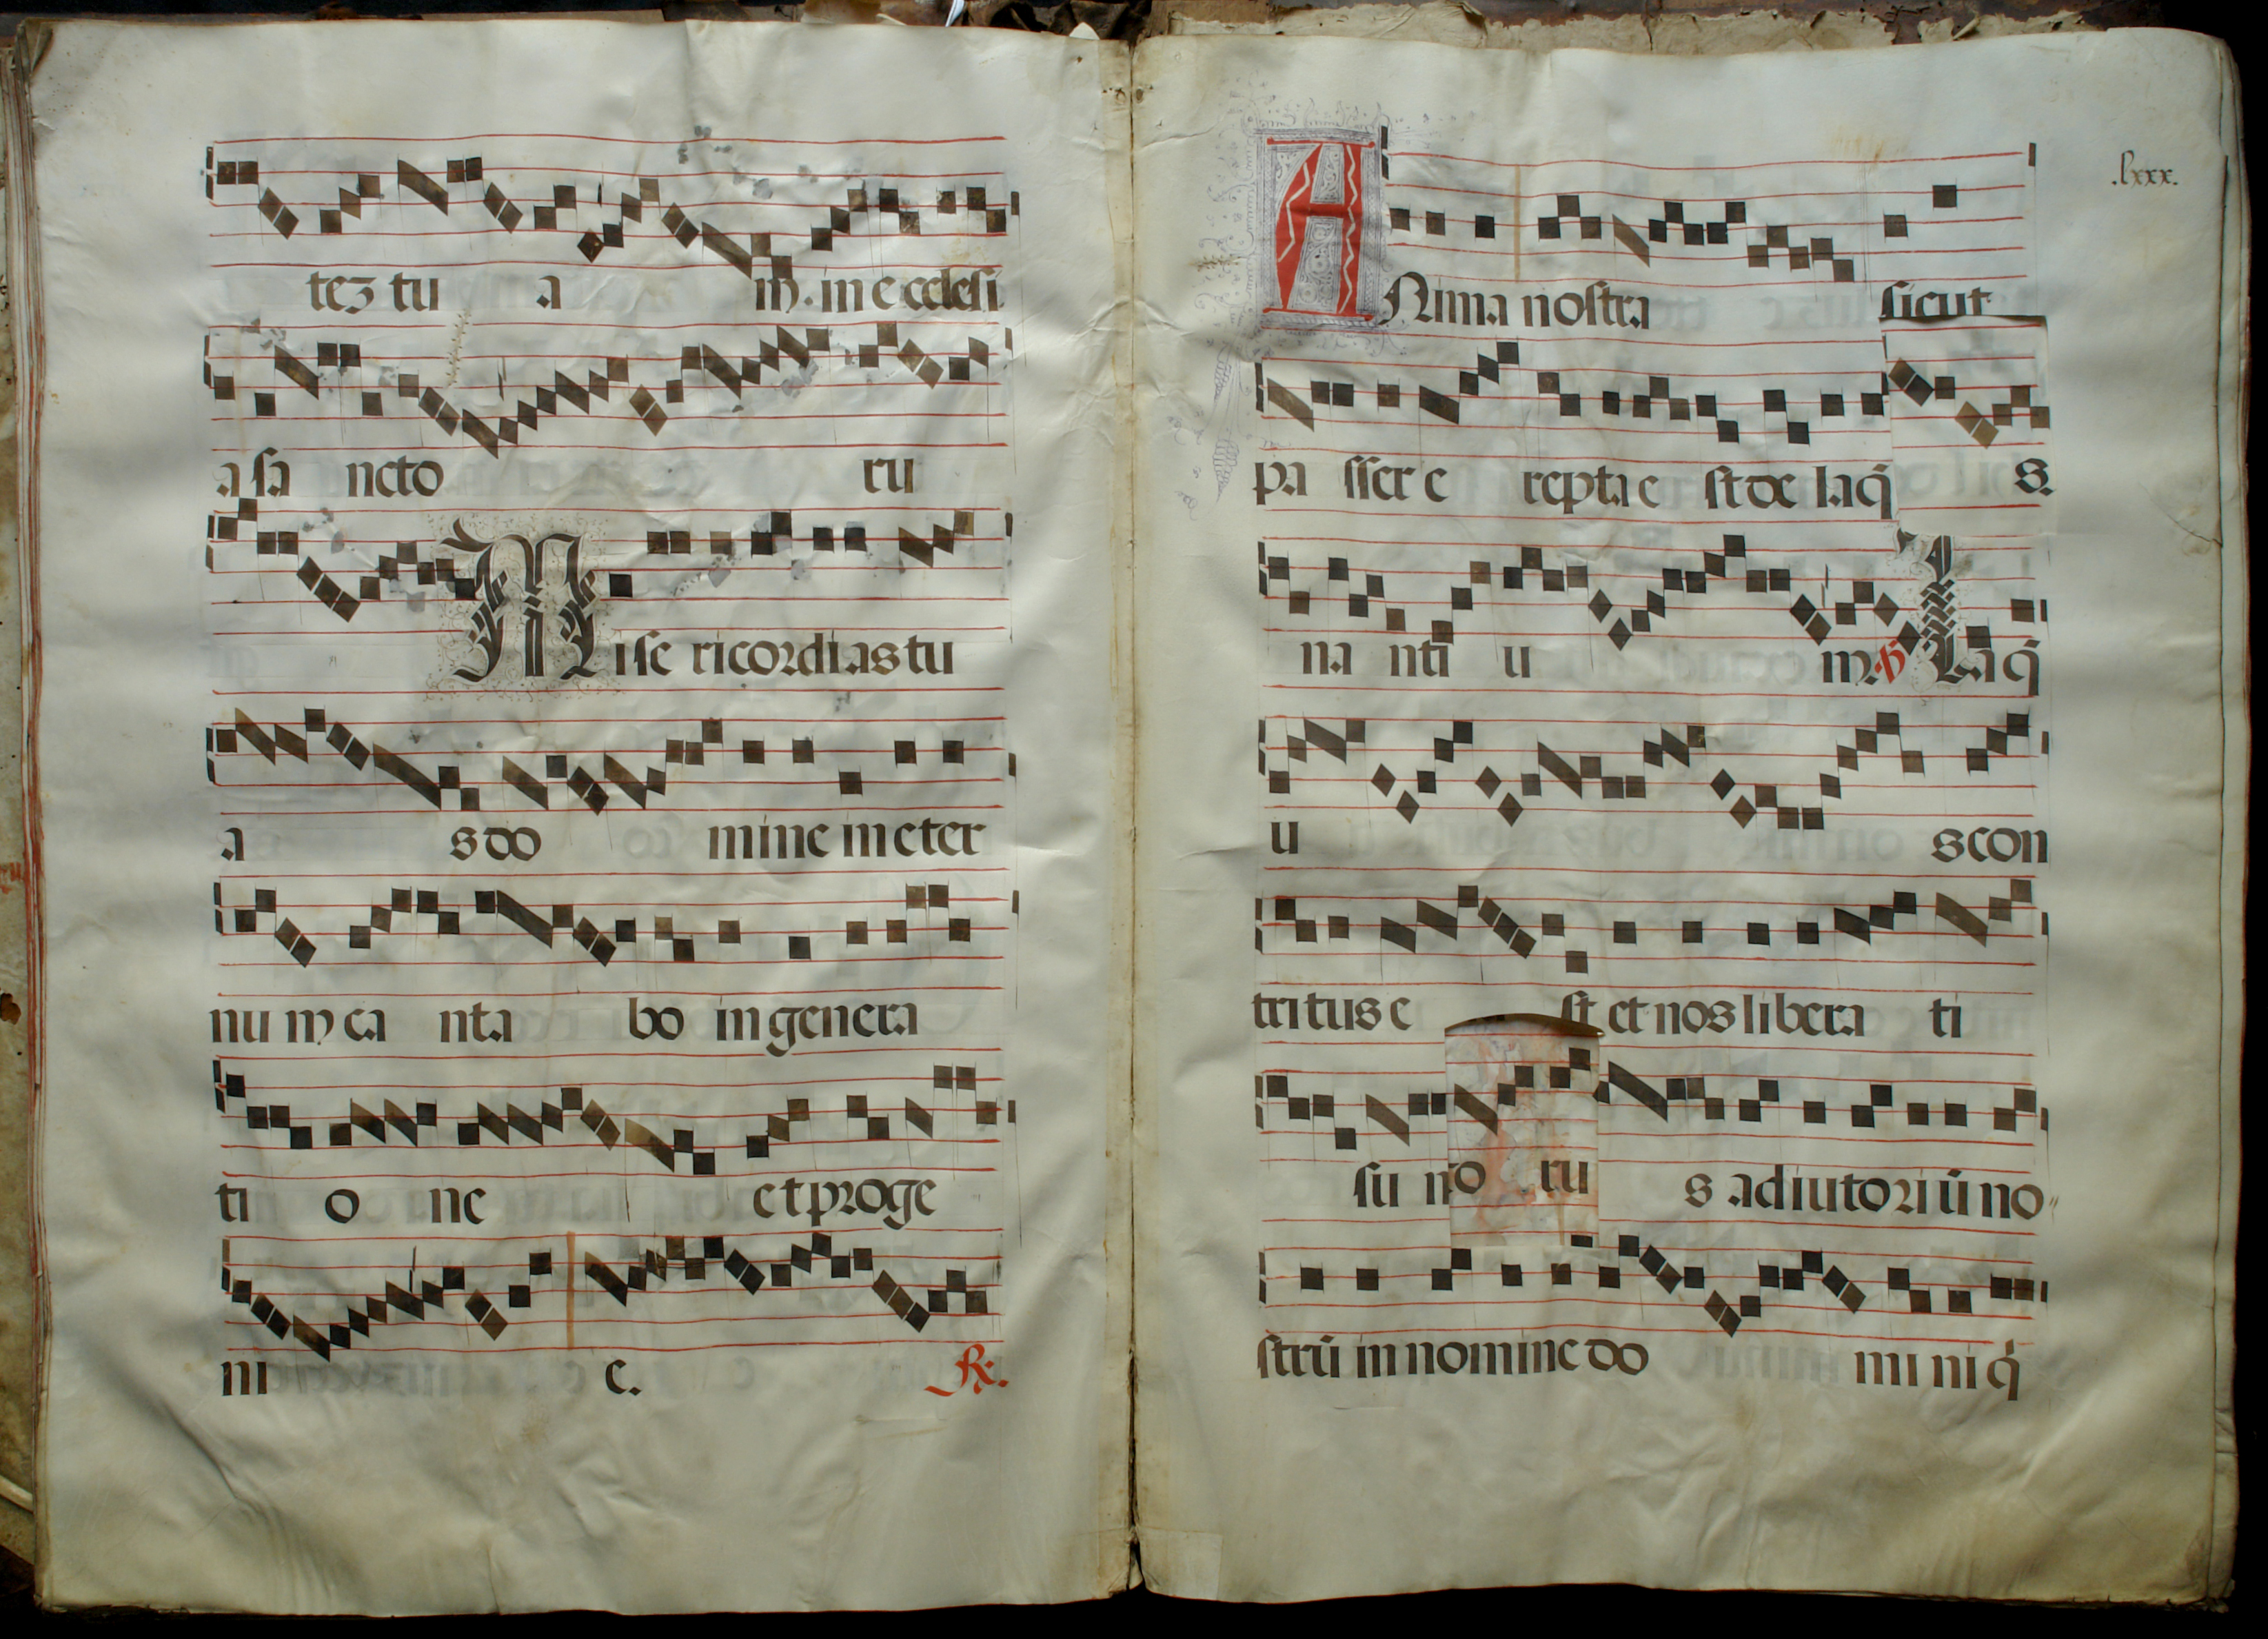 tez tu a m. in e cclesi
a sa ncto ru
Mise ricordias tu
a s do mine in eter
nu m ca nta bo in genera
ti o ne et proge
ni e. R.
.lxxx.
ANima nostra sicut
pa sser e repta e st de laq̃ s.
na nti u m. Laq̃
u s con
tritus e st et nos libera ti
su no ru s adiutoriũ no
strũ in nomine do mi ni q̃